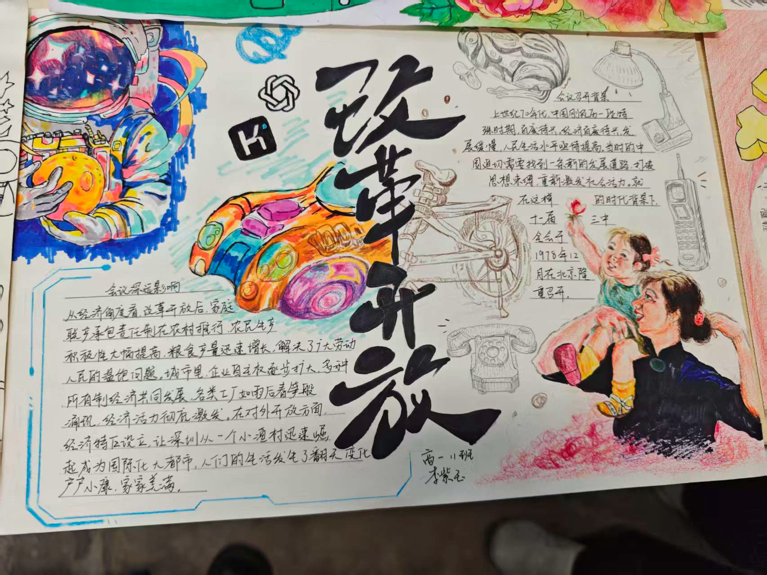 改革开放
K
会议召开背景
上世纪70年代,中国刚从一段特
殊时期
展缓慢,人民生活水平亟待提高,当时的中
国迫切需要找到一条新的发展道路,打破
思想束缚,重新激发社会活力,
在这样 的时代背景下
十一届 三中
全会于
1978年12
月在北京隆
重召开。
会议深远影响
从经济角度看,改革开放后,家庭
联产承包责任制在农村推行,农民生产
积极性大幅提高,粮食产量迅速增长,解决了广大劳动
人民的温饱问题。城市里,企业自主权逐步扩大,多种
所有制经济共同发展,各类工厂如雨后春笋般
涌现,经济活力彻底激发,在对外开放方面,
经济特区设立,让深圳从一个小渔村迅速崛
起成为国际化大都市,人们的生活发生了翻天变化
户户小康,家家充满。
高一11班
李紫玉